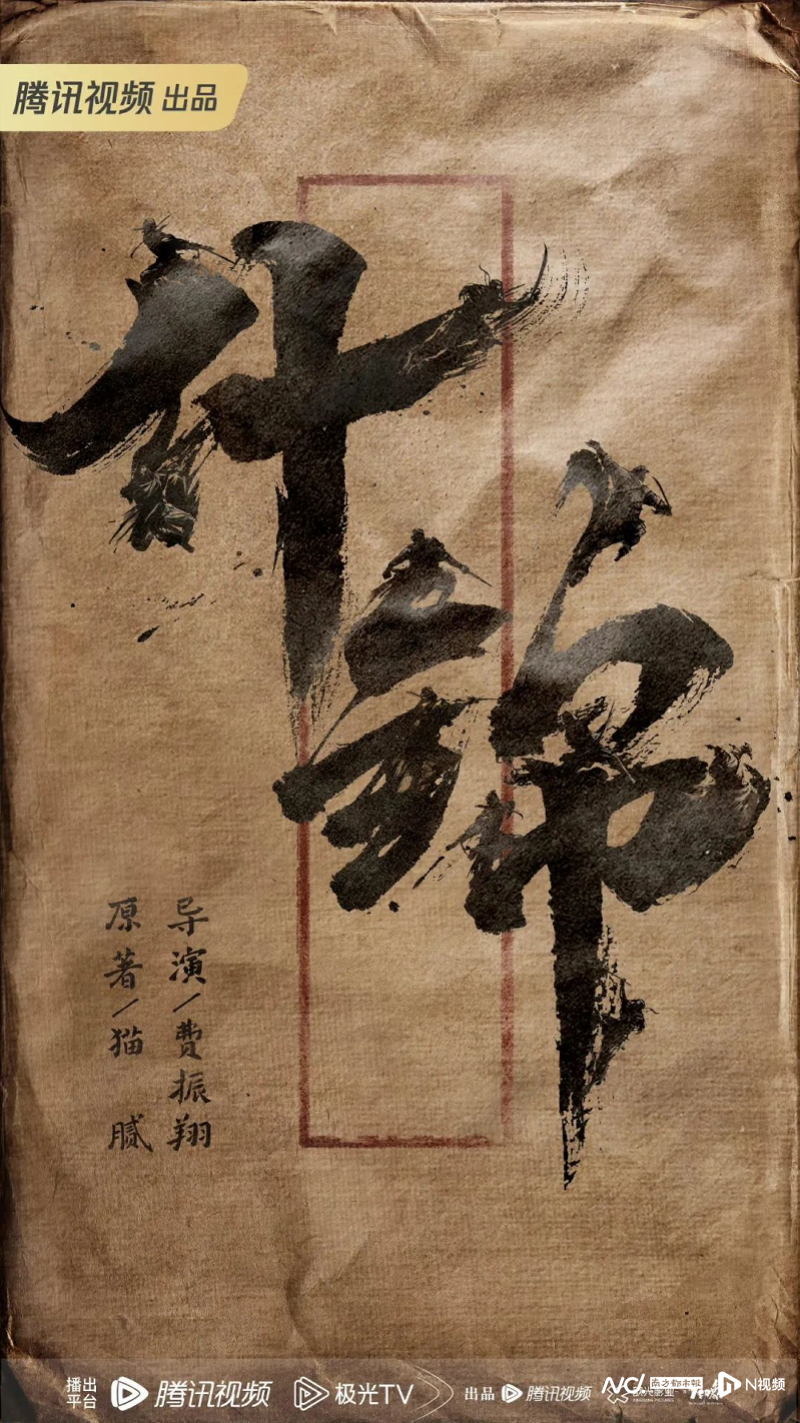 腾讯视频 出品
什錦
导演/費振翔
原著/猫 腻
播出平台 腾讯视频 极光TV 出品 腾讯视频
南方都市报 N视频